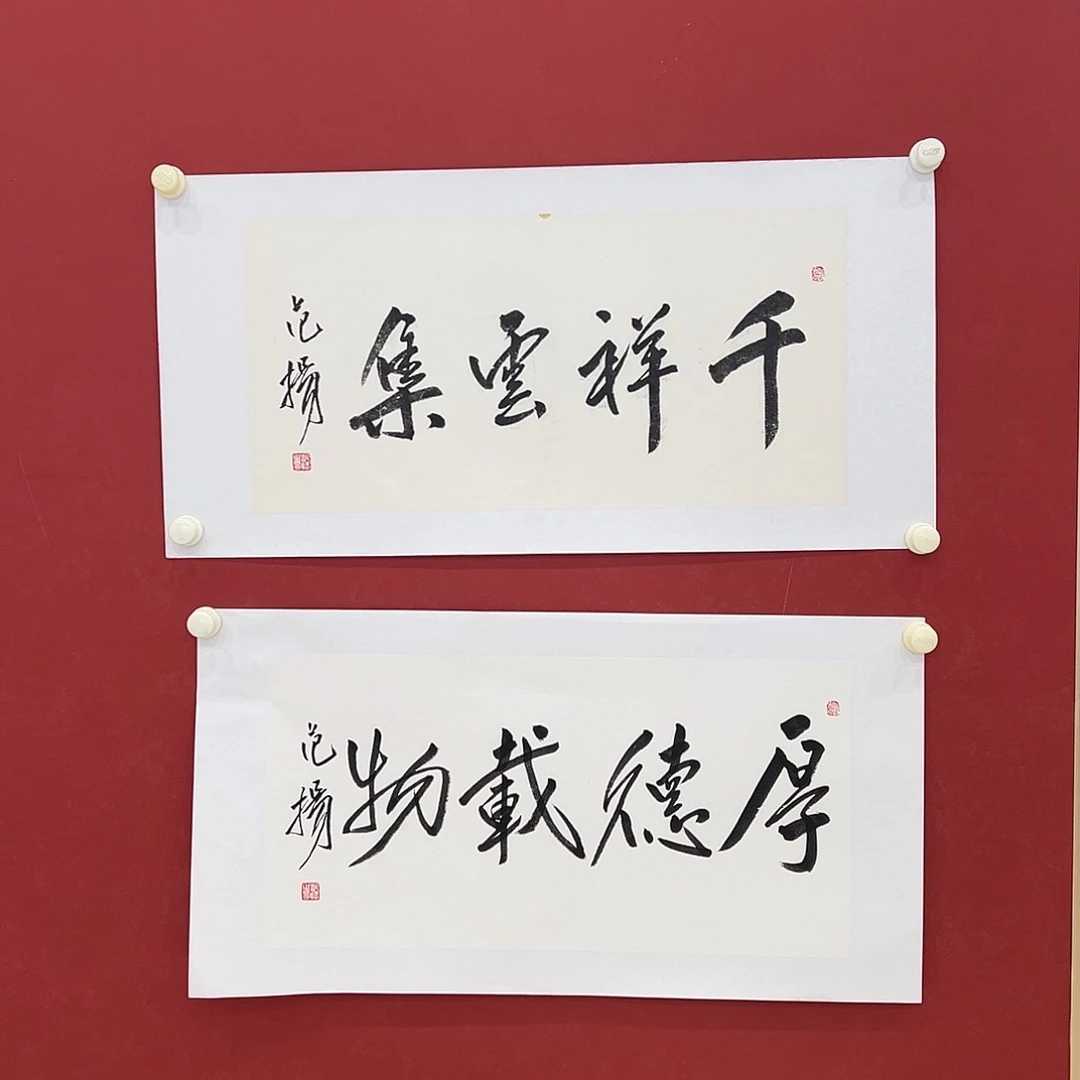 千祥雲集
范揚
厚德載物
范揚